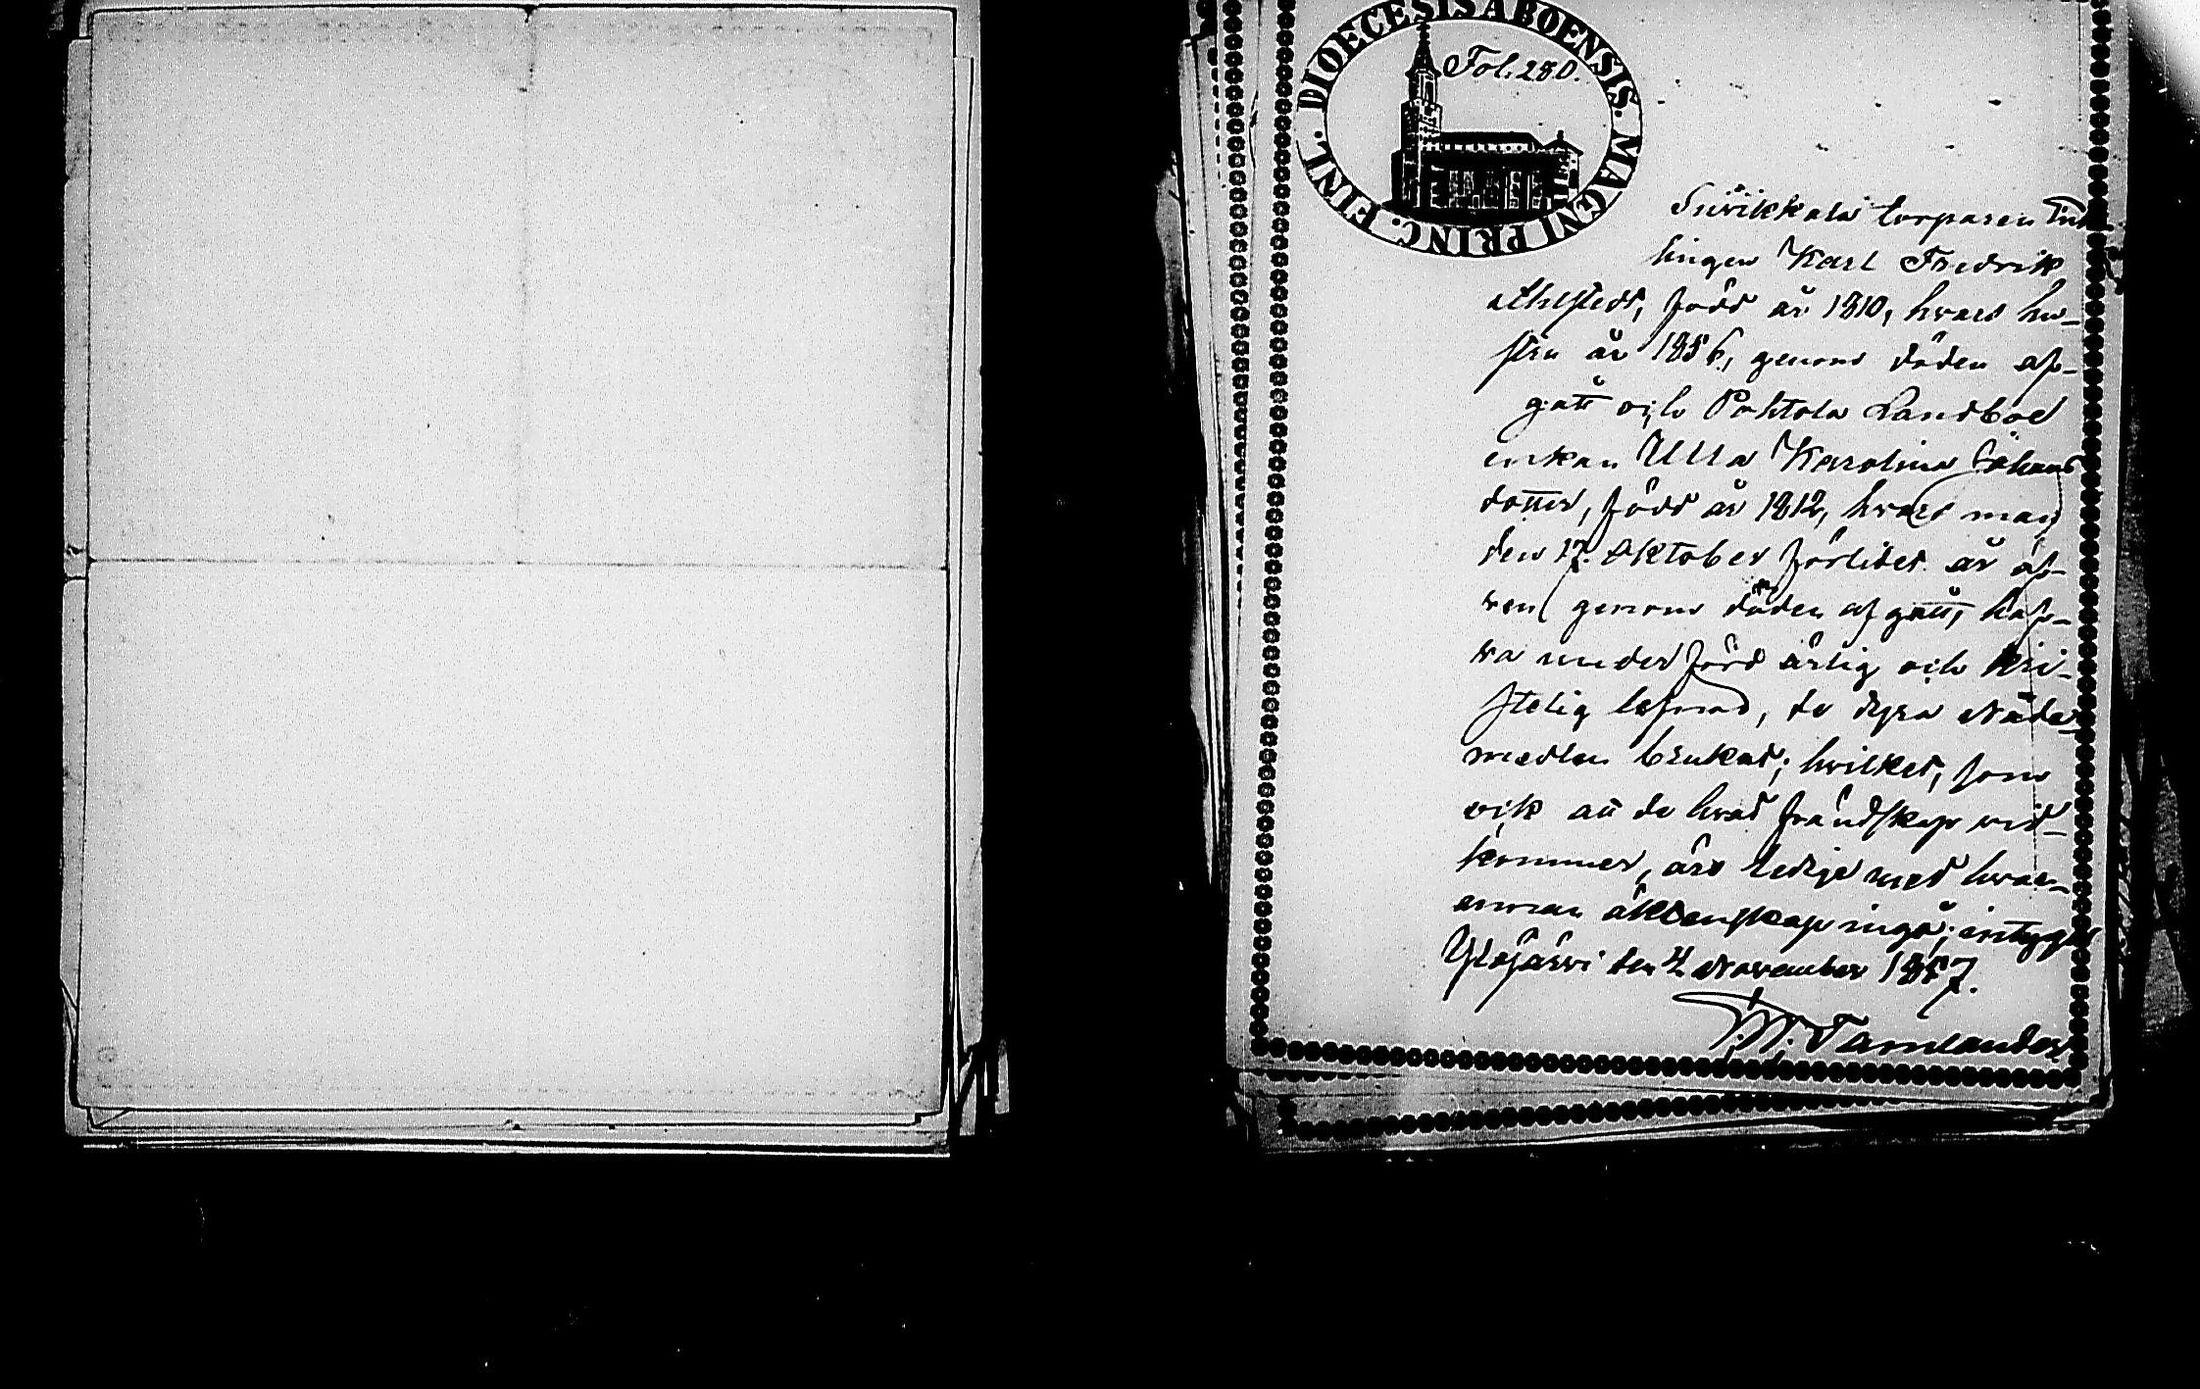 DIOECESIS ABOENSIS. MAGNI PRINC. FINL.
Fol. 280.
Siwikkala torparen Enk
lingen Karl Fredrik
Ahlstedt, född år 1810, hvars hu-
stru år 1856, genom döden af-
gått och Pohtola Landbod
enkan Ulla Karolina Johans
dotter, född år 1812, hvars man
den 17. Oktober förlidet år äf-
ven genom döden afgått, haf-
va under förd ärlig och kri-
stelig lefnad, de dyra Nåde
medlen brukat; hvilket, som
ock att de hvad frändskap vid-
kommer, äro ledige med hvar-
annan äktenskap ingå; intygar
Ylöjärvi den 4 November 1857.
Tamlander